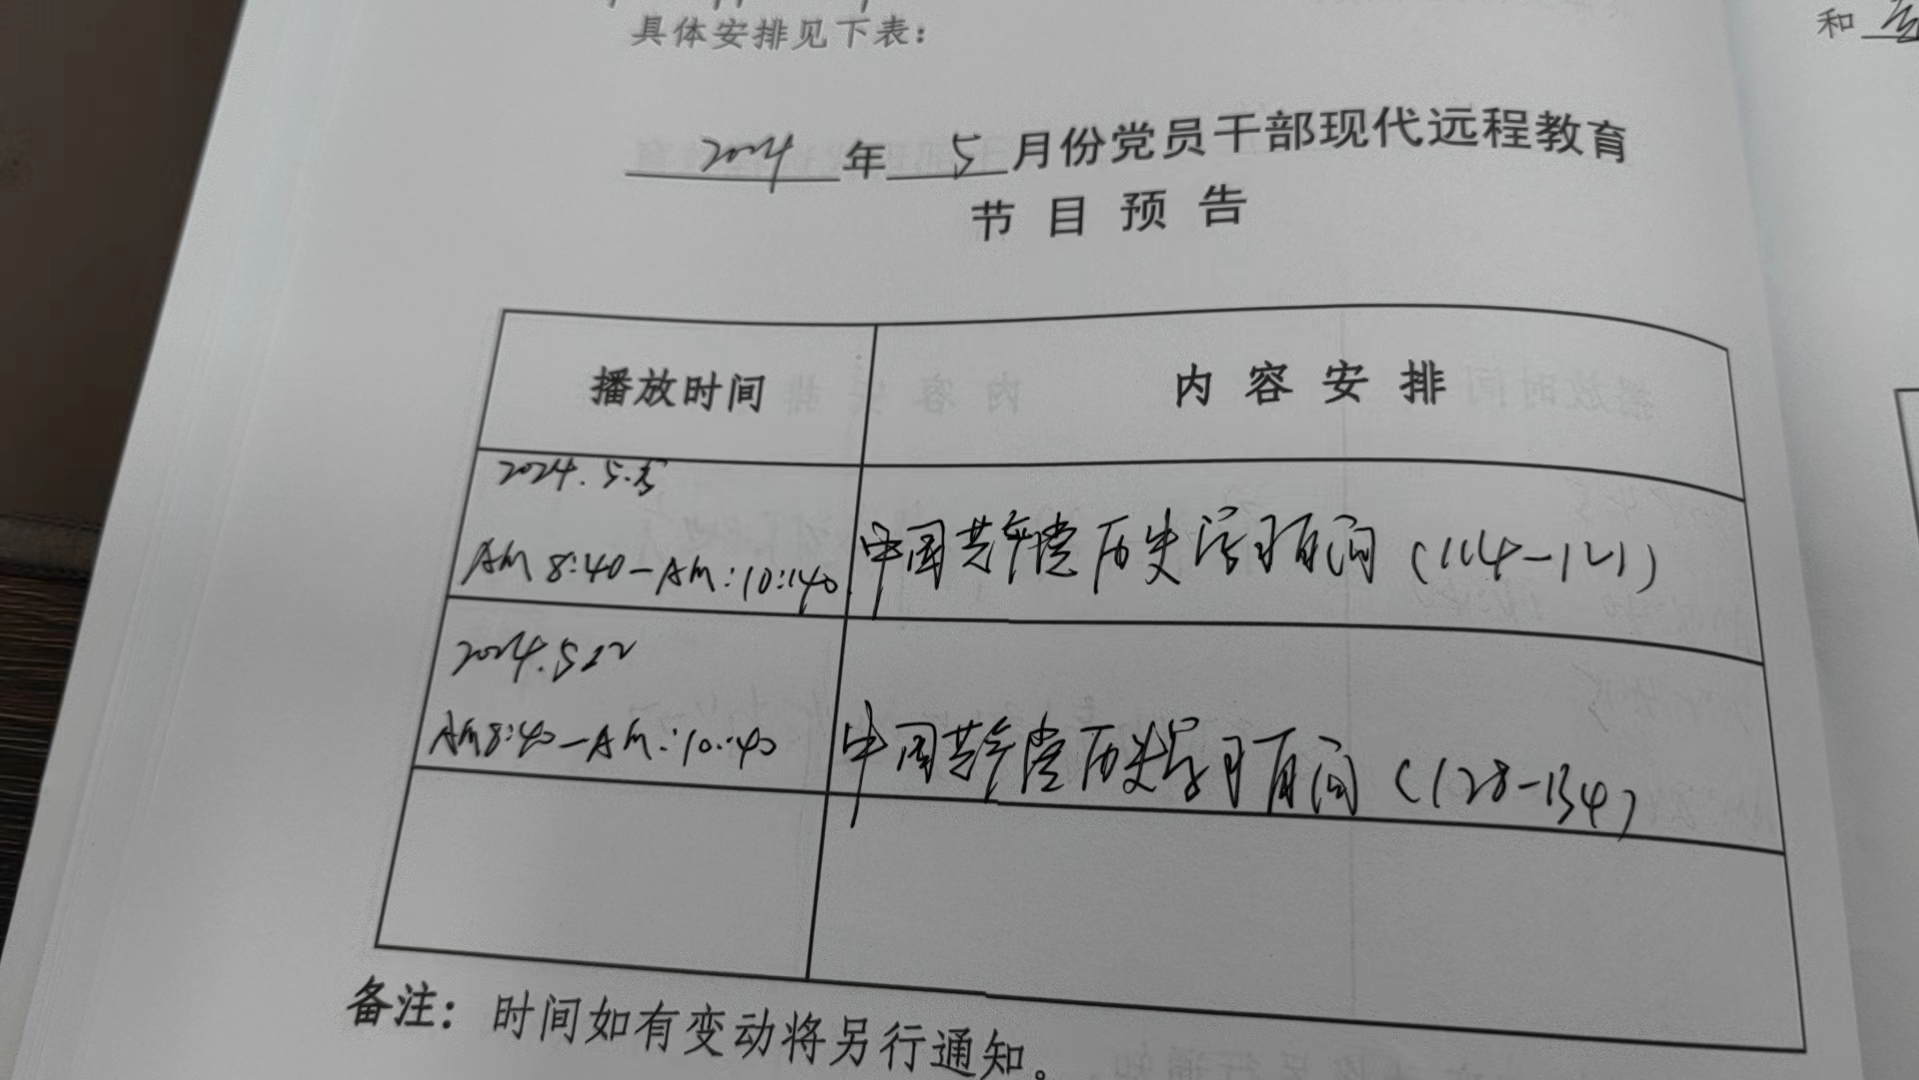 具体安排见下表：
2024年5月份党员干部现代远程教育
节目预告
播放时间 内容安排
2024.5.
AM 8:40-AM:10:40 中国共产党历史学习百问（114-121）
2024.5.22
AM8:40-AM:10:40 中国共产党历史学习百问（128-134）
备注：时间如有变动将另行通知。
和